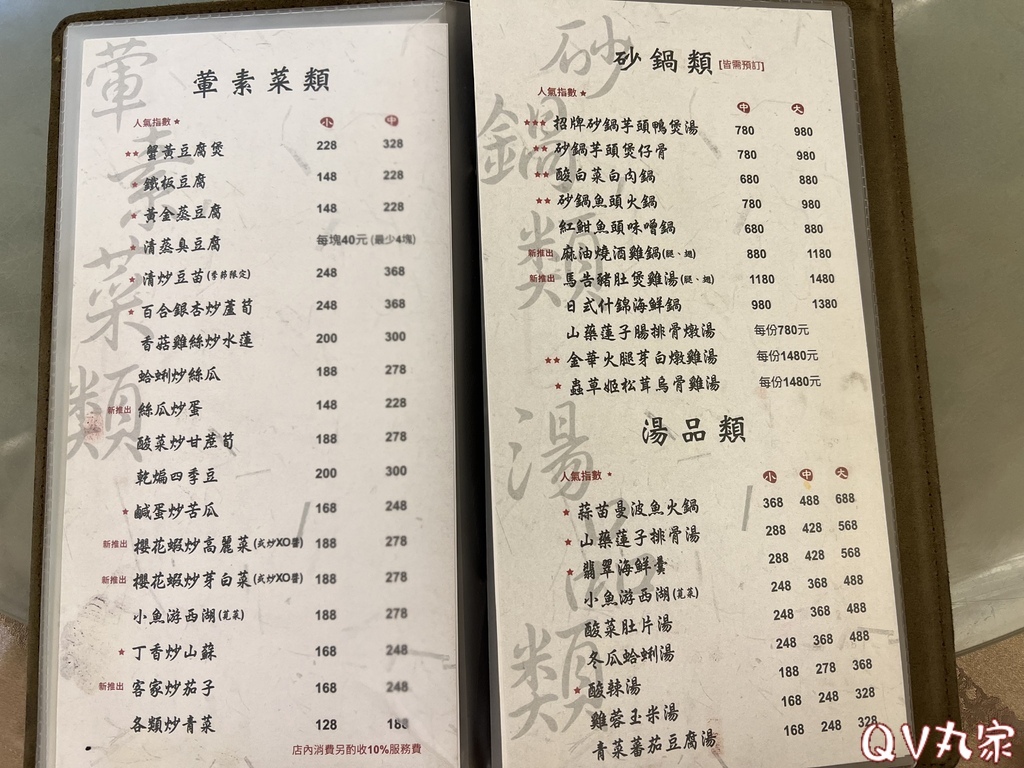 葷素菜類
人氣指數★
小 中
★★蟹黃豆腐煲 228 328
★鐵板豆腐 148 228
★黃金蒸豆腐 148 228
★清蒸臭豆腐 每塊40元(最少4塊)
★清炒豆苗(季節限定) 248 368
★百合銀杏炒蘆荀 248 368
香菇雞絲炒水蓮 200 300
蛤蜊炒絲瓜 188 278
新推出 絲瓜炒蛋 148 228
酸菜炒甘蔗荀 188 278
乾煸四季豆 200 300
★鹹蛋炒苦瓜 168 248
新推出 櫻花蝦炒高麗菜(或炒XO醬) 188 278
新推出 櫻花蝦炒芽白菜(或炒XO醬) 188 278
小魚游西湖(莧菜) 188 278
★丁香炒山蘇 168 248
新推出 客家炒茄子 168 248
各類炒青菜 128 188
店內消費另酌收10%服務費
砂鍋類[皆需預訂]
人氣指數★
中 大
★★★招牌砂鍋芋頭鴨煲湯 780 980
★★砂鍋芋頭煲仔骨 780 980
★★酸白菜白肉鍋 680 880
★★砂鍋魚頭火鍋 780 980
紅魽魚頭味噌鍋 680 880
新推出 麻油燒酒雞鍋(腿、翅) 880 1180
新推出 馬告豬肚煲雞湯(腿、翅) 1180 1480
日式什錦海鮮鍋 980 1380
山藥蓮子腸排骨燉湯 每份780元
★★金華火腿芽白燉雞湯 每份1480元
★蟲草姬松茸烏骨雞湯 每份1480元
湯品類
人氣指數★
小 中 大
★蒜苗曼波魚火鍋 368 488 688
★山藥蓮子排骨湯 288 428 568
★翡翠海鮮羹 288 428 568
小魚游西湖(莧菜) 248 368 488
酸菜肚片湯 248 368 488
冬瓜蛤蜊湯 248 368 488
★酸辣湯 188 278 368
雞蓉玉米湯 168 248 328
青菜蕃茄豆腐湯 168 248 328
葷素菜類
砂鍋類
湯品類
QV丸家